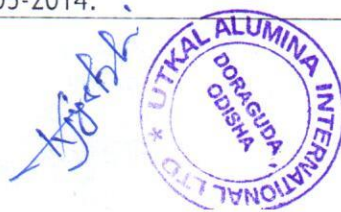 05-2014.
★ UTKAL ALUMINA INTERNATIONAL LTD
DORAGUDA,
ODISHA